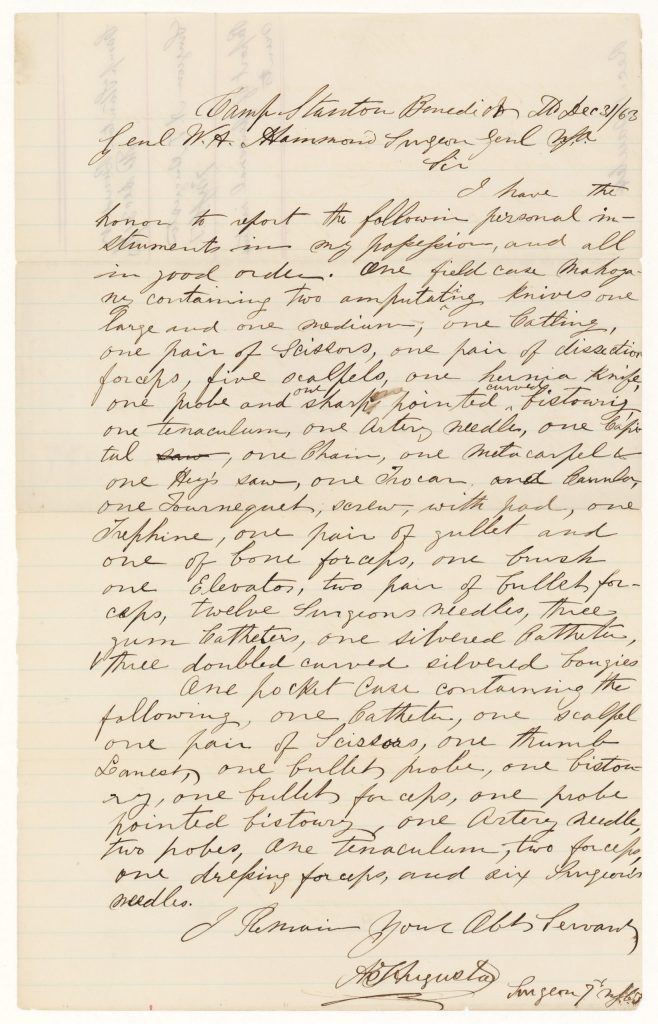 Camp Stanton Benedict Md Dec 31/63
Genl W. A. Hammond Surgeon Genl USA
Sir
I have the
honor to report the followin personal in-
struments in my possession, and all
in good order. One field case Mahoga-
ny containing two amputating Knives one
large and one medium, one Catling,
one pair of Scissors, one pair of dissection
forceps, five scalpels, one hernia Knife,
one probe and one sharp pointed curved bistouris,
one tenaculum, one Artery needle, one Capi-
tal saw, one Chain, one Metacarpel &
one Hey's saw, one Trocar and Canula,
one Tournequet, screw, with pad, one
Trephine, one pair of gullet and
one of bone forceps, one brush
one Elevator, two pair of bullet for-
ceps, twelve Surgeons needles, three
gum Catheters, one silvered Catheter,
three doubled curved silvered bougies
One pocket Case containing the
following, one Catheter, one scalpel
one pair of Scissors, one thumb
Lancet, one bullet probe, one bistou-
ry, one bullet forceps, one probe
pointed bistoury, one Artery needle,
two probes, One tenaculum, two forceps,
one dressing forceps, and six Surgeon's
needles.
I Remain Your Obt Servant
A T Augusta
Surgeon 7th